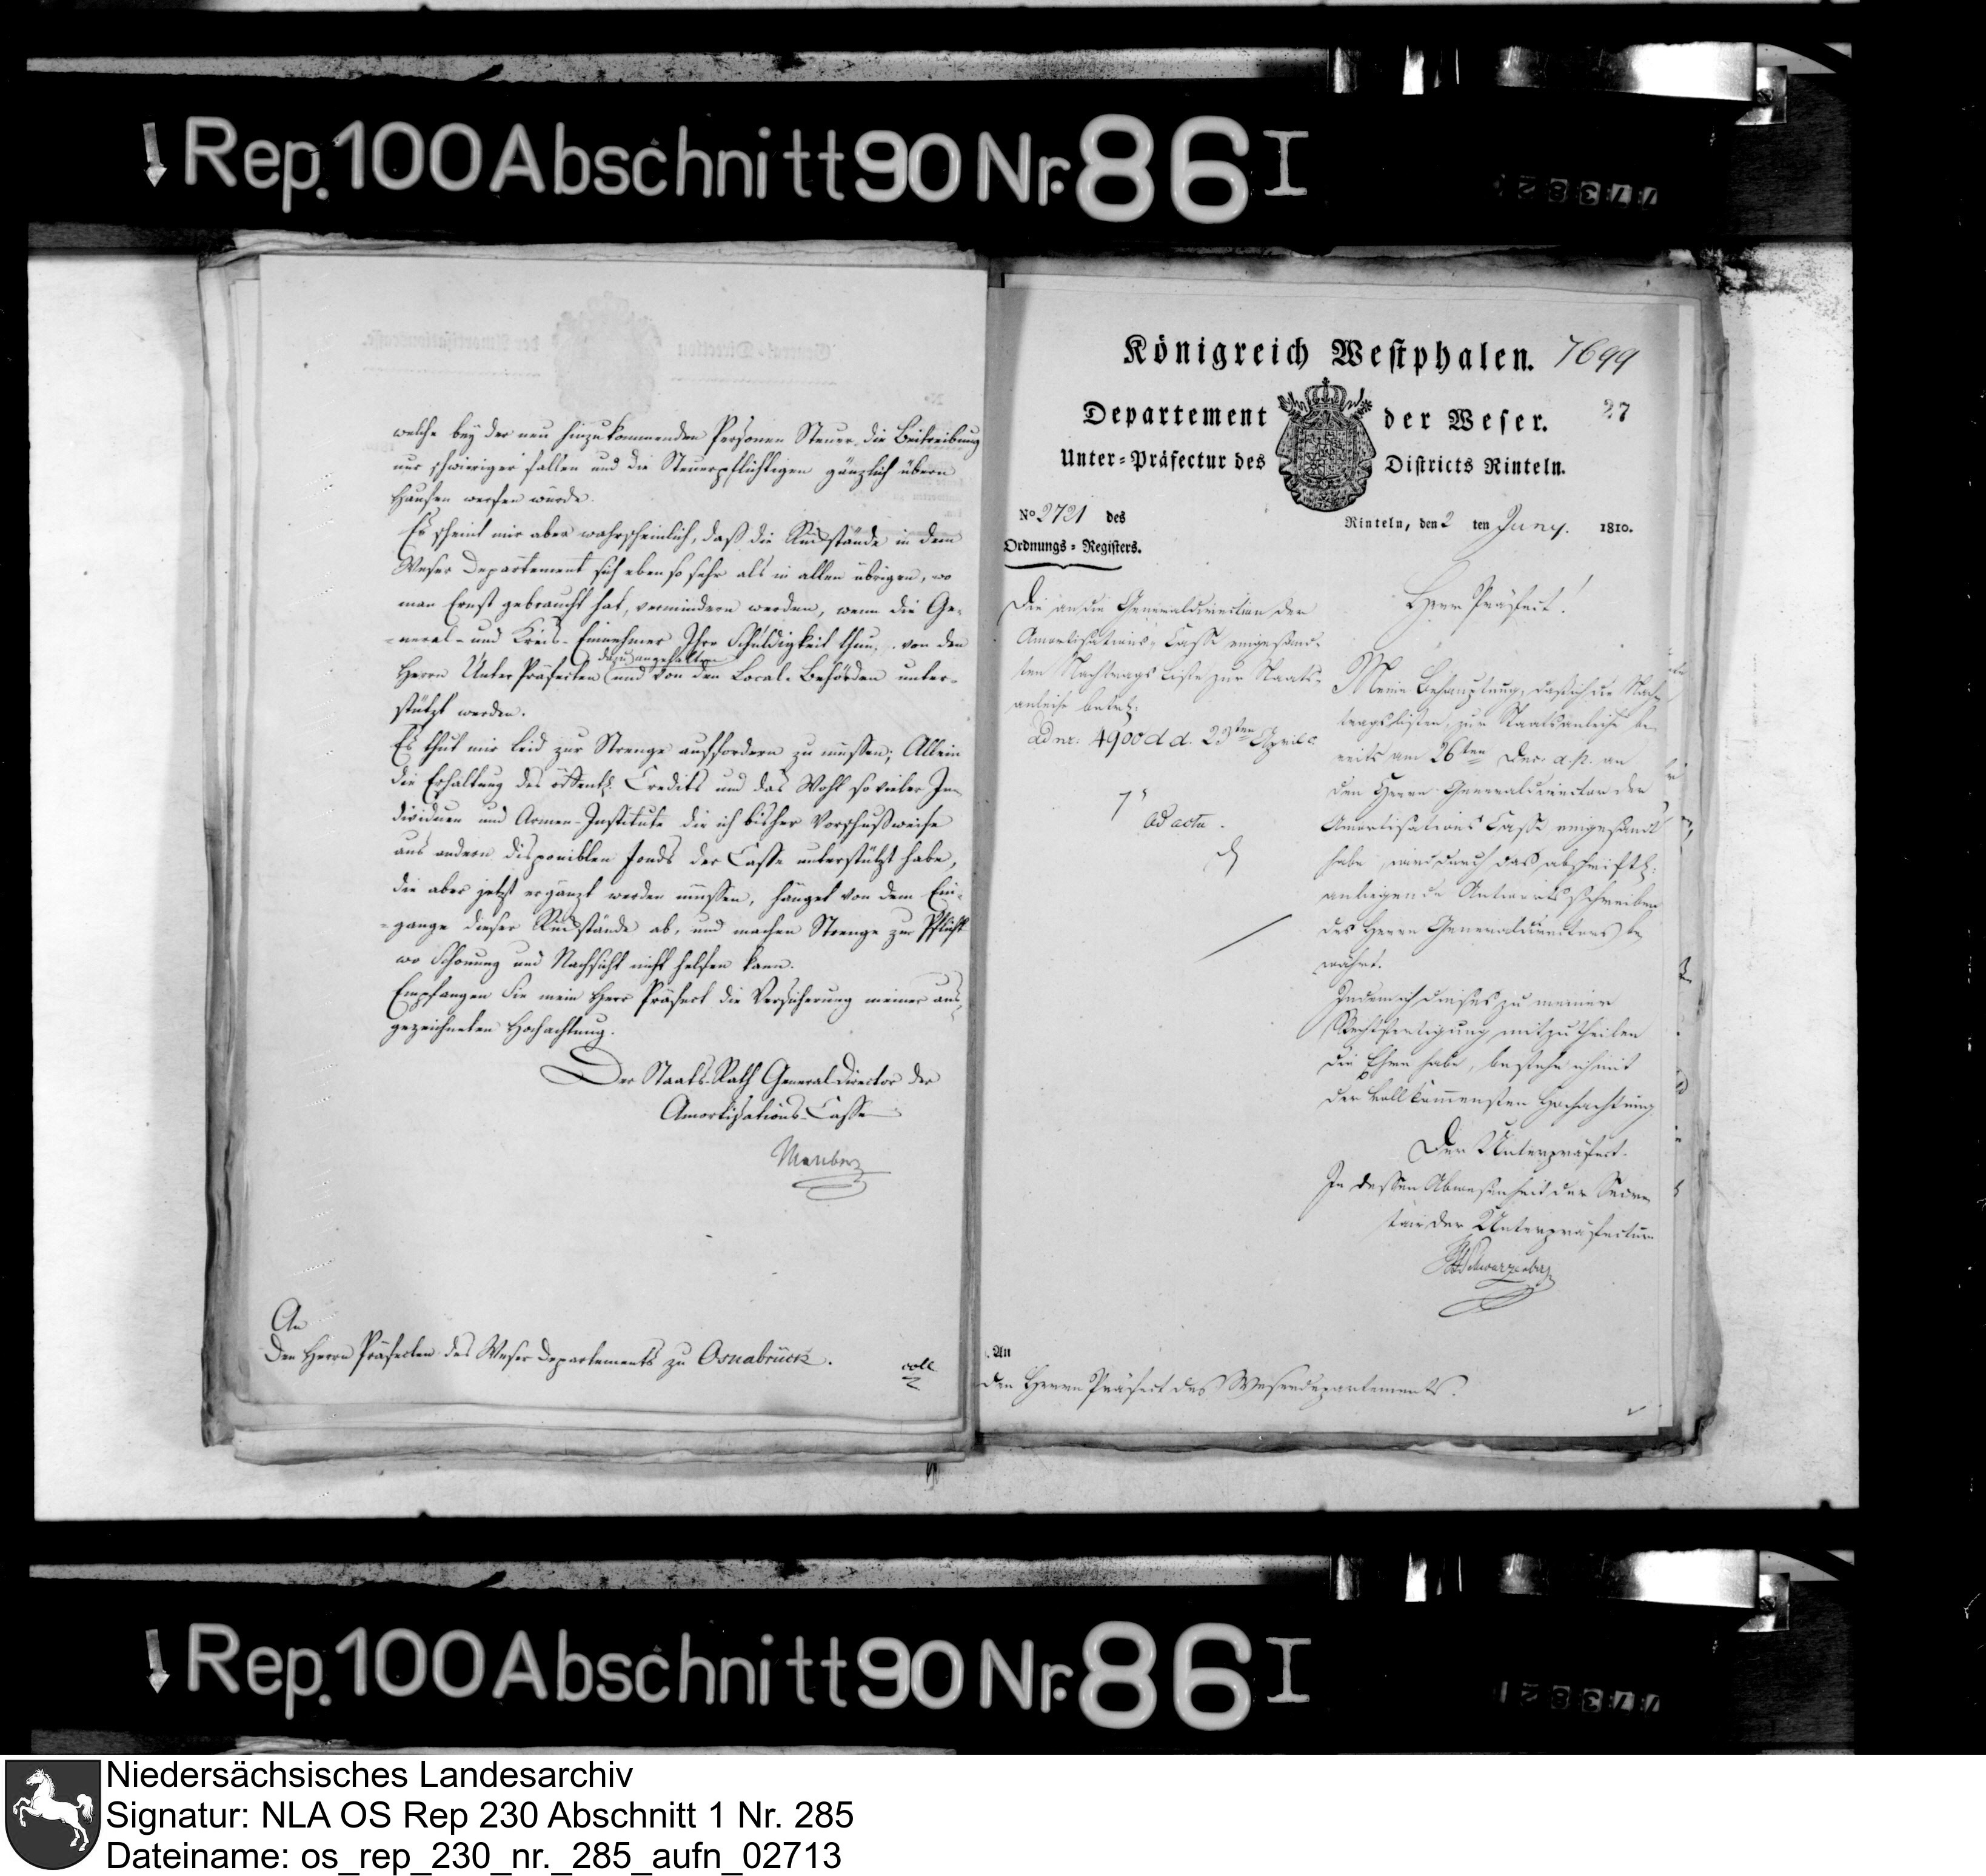 Rep. 100 Abschnitt 90 Nr. 86 I
welche bey der neu hinzukommenden Personen Steuer, die Beitreibung
nur schwieriger fallen und die Steuerpflichtigen gänzlich übern
Haufen werfen würde.
Es scheint mir aber wahrscheinlich, daß die Rückstände in dem
Weser Departement sich eben so sehr als in allen übrigen, wo
man Ernst gebraucht hat, vermindern werden, wenn die Ge-
neral- und Kreis-Einnehmer Ihre Schuldigkeit thun, von den
dazu angehalten
Herrn Unter Präfecten und von den Local-Behörden unter-
stützt werden.
Es thut mir leid zur Strenge auffordern zu müssen; Allein
die Erhaltung des öffentl. Credits und das Wohl so vieler In-
dividuen und Armen-Institute die ich bisher Vorschußweise
aus andern disponiblen Fonds der Casse unterstützt habe,
die aber jetzt ergänzt werden müssen, hänget von dem Ein-
gange dieser Rückstände ab, und machen Strenge zur Pflicht
wo Schonung und Nachsicht nicht helfen kann.
Empfangen Sie mein Herr Präfect die Versicherung meiner aus-
gezeichneten Hochachtung.
Der Staats-Rath General Director der
Amortisations-Casse
An
Den Herrn Präfecten des Weser Departements zu Osnabrück.
coll
Königreich Westphalen. 7699
27
Departement der Weser.
Unter-Präfectur des Districts Rinteln.
No 2721 des
Ordnungs-Registers.
Rinteln, den 2 ten Juny. 1810.
Die an die Generaldirection der
Amortisations-Casse eingesand-
ten Nachtrags Liste zur Staats-
anleihe betr:
ad nr. 4900 d d. 23ten April c.
ad acta.
Herr Präfect!
Meine Behauptung, daß ich die Nach-
tragslisten, zur Staatsanleihe be-
reits am 26ten Dec. a. p. an
den Herrn Generaldirector der
Amortisations Casse eingesandt
habe, wird durch das abschriftl.
anliegende Antwortsschreiben
des Herrn Generaldirectors be-
währt.
Indem ich dieses zu meiner
Rechtfertigung mitzutheilen
die Ehre habe, bestehe ich mit
der vollkommensten Hochachtung
Der Unterpräfect.
In dessen Abwesenheit der Secre-
tair der Unterpräfectur
An
den Herrn Präfect des Weserdepartements.
Rep. 100 Abschnitt 90 Nr. 86 I
Niedersächsisches Landesarchiv
Signatur: NLA OS Rep 230 Abschnitt 1 Nr. 285
Dateiname: os_rep_230_nr._285_aufn_02713